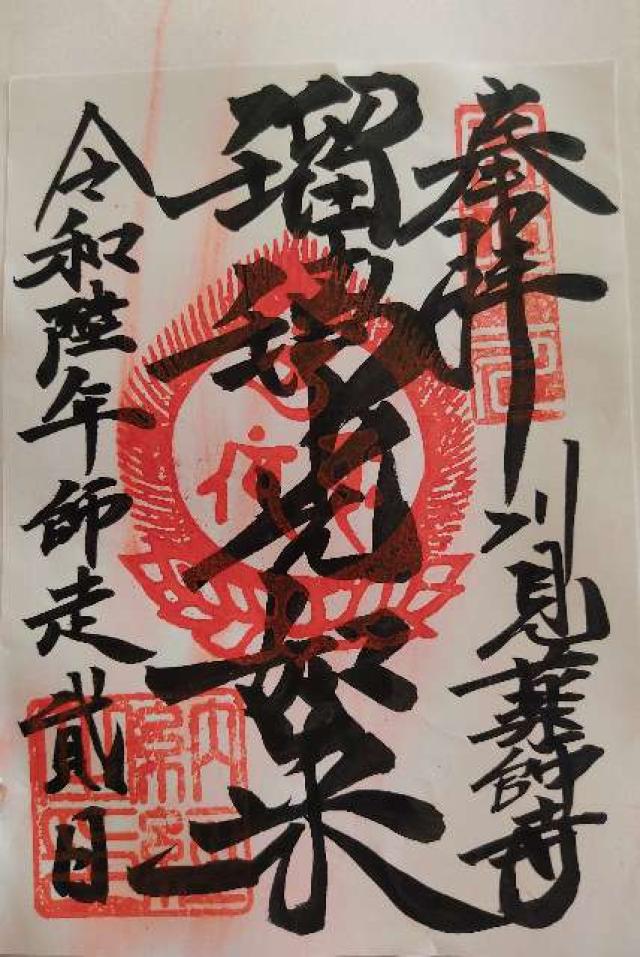 奉拝
川見薬師寺
瑠璃光如来
令和陸年師走貳日